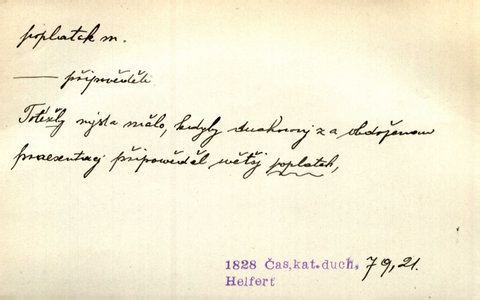 poplatek m.
— připověděti
Totéžby místa mělo, kdyby duchovný za obdrženou
praezentacj připowěděl wětšj poplatek,
1828 Čas.kat.duch, 79,21.
Helfert